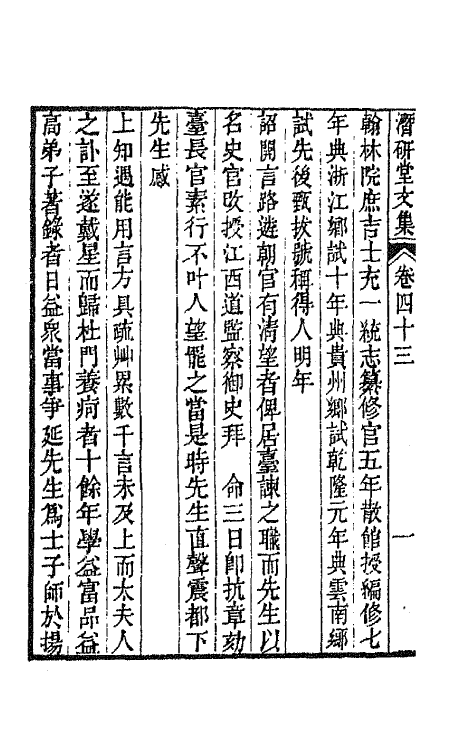 潛研堂文集 卷四十三 一
翰林院庶吉士充一統志纂修官五年散館授編修七
年典浙江鄉試十年典貴州鄉試乾隆元年典雲南鄉
試先後甄拔號稱得人明年
詔開言路遴朝官有清望者俾居臺諫之職而先生以
名史官改授江西道監察御史拜 命三日卽抗章劾
臺長官素行不叶人望罷之當是時先生直聲震都下
先生感
上知遇能用言方具疏艸累數千言未及上而太夫人
之訃至遂戴星而歸杜門養疴者十餘年學益富品益
高弟子著錄者日益衆當事爭延先生爲士子師於揚